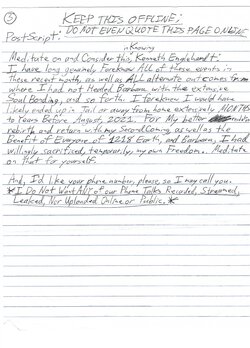 5
KEEP THIS OFFLINE;
DO NOT EVEN QUOTE THIS PAGE ONLINE
PostScript:
in Knowing
Meditate on and Consider this, Kenneth Englehardt;
I have long genuinely Foreknow All of these events in
these recent month, as well as ALL alternate outcomes from
where I had not Heeded Barbara with the extensive
Soul Bonding, and so forth. I foreknew I would have
likely ended up in Jail or away from home extensively MONTHS
to Years Before August, 2021. For My better
rebirth and return with my Second Coming as well as the
benefit of Everyone of 1218 Earth, and Barbara, I had
willingly sacrificed, temporarily, my own Freedom. Meditate
on that for yourself.
And, I'd like your phone number, please, so I may call you.
*I Do Not Want ANY of our Phone Talks Recorded, Streamed,
Leaked, Nor Uploaded Online or Public.*